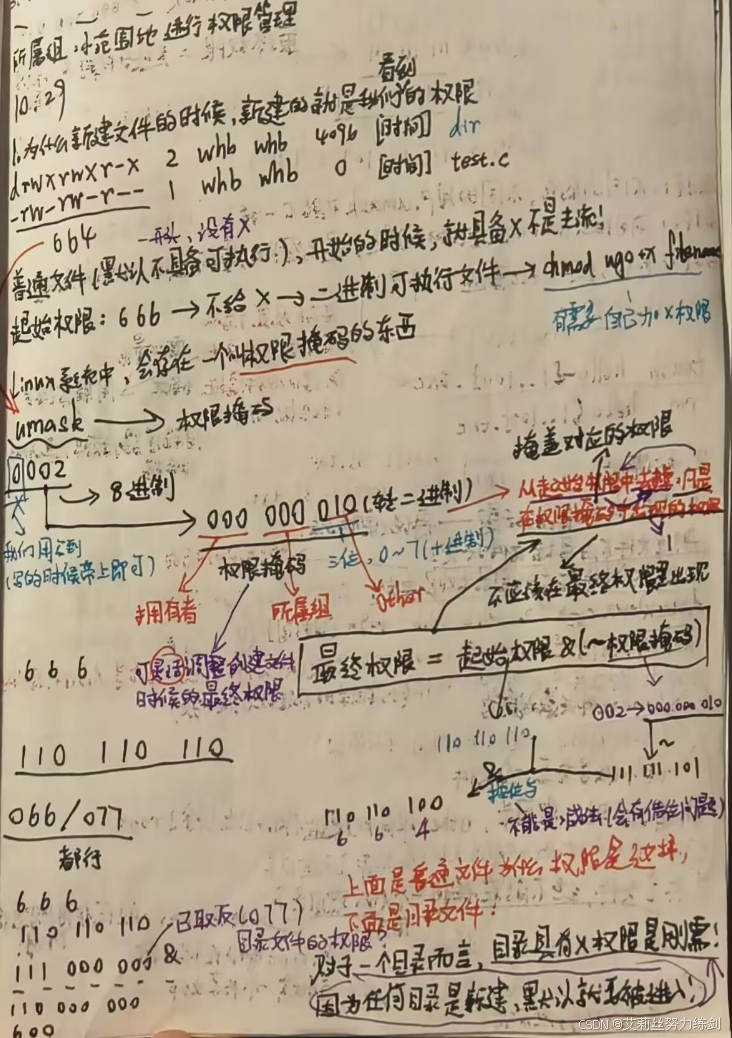 所属组:小范围地进行权限管理
10.29
看到
1.为什么新建文件的时候,新建的就是我们的权限
drwxrwxr-x 2 whb whb 4096 [时间] dir
-rw-rw-r-- 1 whb whb 0 [时间] test.c
664
一开头,没有x
普通文件(默认不具备可执行),开始的时候,就具备x不是主流!
起始权限:666→不给x→二进制可执行文件→chmod ugo+x filename
有需要自己加x权限
Linux系统中,会存在一个叫权限掩码的东西
umask → 权限掩码
掩盖对应的权限
0002
→8进制
000 000 010(转二进制)
从起始权限中去掉,凡是
在权限掩码中出现的权限
我们用不到
(写的时候带上即可)
权限掩码
三位,0~7(十进制)
1
不应该在最终权限里出现
拥有者 所属组 other
最终权限 = 起始权限 &(~权限掩码)
6 6 6
可灵活调整创建文件
时候的最终权限
002→000 000 010
110 110 110
~
110 110 110
&
111 111 101
按位与
066/077
110 110 100
不能是减法(会有借位问题)
6 6 4
都行
上面是普通文件为什么权限是这样,
下面是目录文件:
6 6 6
110 110 110
已取反(077)
目录文件的权限?
111 000 000 &
对于一个目录而言,目录具有x权限是刚需!
110 000 000
因为任何目录是新建,默认就要被进入!
600
CSDN @艾莉丝努力练剑